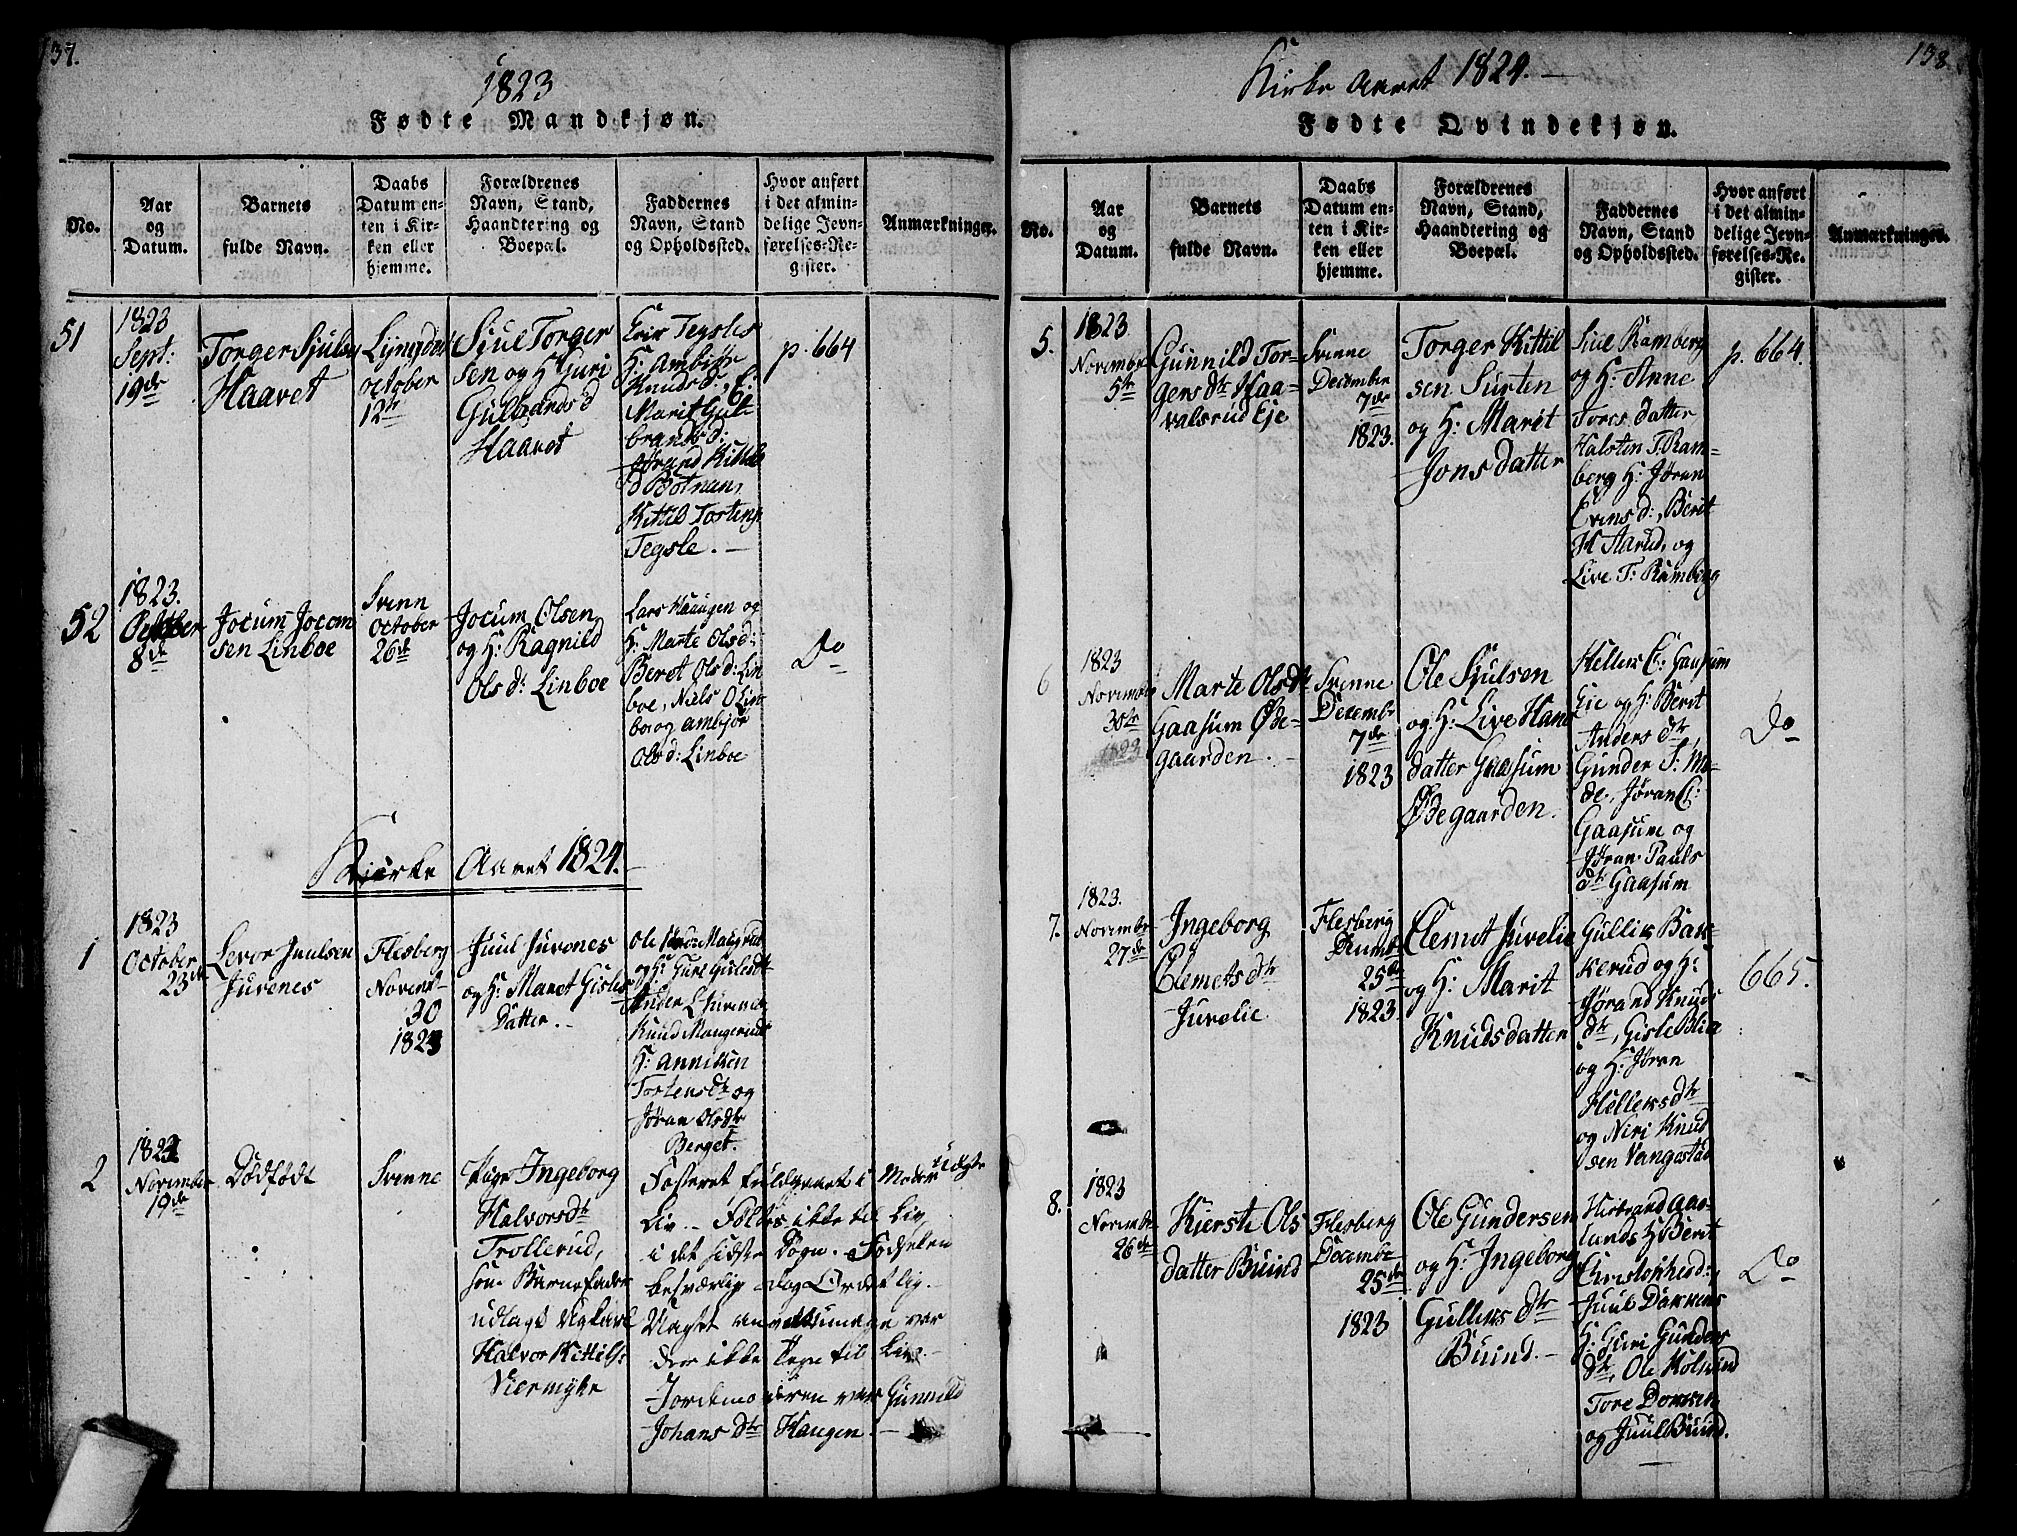 137.
1823
Fødte Mandkjøn.
No.
Aar
og
Datum.
Barnets
fulde Navn.
Daabs
Datum en-
ten i Kir-
ken eller
hjemme.
Forældrenes
Navn, Stand,
Haandtering og
Boepæl.
Faddernes
Navn, Stand
og Opholdssted.
Hvor anført
i det almin-
delige Jevn-
førelses-Re-
gister.
Anmærkninger.
51
1823
Sept:
19de
Torger Sjulsen
Haavet
Lyngdal
October
12te
Sjul Torger
sen og H Guri
Gulbrandsd
Haavet
Erik Tegsles
H: Ambiør
Knudsd.,
Marit Gul-
brandsd:
Jørand Kittils
d Botnan,
Kittil Tostens
Tegsle. —
p. 664
52
1823.
October
8de
Jocum Jocom
sen Linboe
Svenn
October
26de
Jocum Olsen
og H: Ragnild
Olsd: Linboe
Lars Haugen og
H: Marte Olsd:
Beret Olsd: Lin
boe, Niels O Lin
boe og Ambjør
Olsd: Linboe
Do
Kirke Aaret 1824.
1
1823
October
23de
Levor Juulsen
Juvenes
Flesberg
Novemb
30
1823
Juul Juvenes
og H: Maret Gisles
Datter.
Ole Maugrud
og H: Guri Gulsdtr
Knud Mangerud
H: Anniken
Tostensdtr og
Jøran Olsdtr
Berget.
2
1823
November
19de
Dødfødt
Svenne
Pige Ingeborg
Halvorsdtr
Trollerud,
som Barnefader
udlagt Ugkarl
Halvor Kittils:
Viermyhr
Fosteret fuldbaaret i Moders
Liv. Føltes ikke til Liv
i det sidste Døgn. Fødselen
besværlig dog Ordentlig.
Uagtet anvendte umage var
der ikke tegn til Liv. —
Jordemoderen var Gunnild
Johansdtr Haugen. —
138
Kirke Aaret 1824. —
Fødte Qvindekjøn.
No.
Aar
og
Datum.
Barnets
fulde Navn.
Daabs
Datum en-
ten i Kir-
ken eller
hjemme.
Forældrenes
Navn, Stand,
Haandtering og
Boepæl.
Faddernes
Navn, Stand
og Opholdssted.
Hvor anført
i det almin-
delige Jevn-
førelses-Re-
gister.
Anmærkninger.
5.
1823
November
5te
Gunnild Tor-
gersdtr Haa-
valsrud Eje
Svenne
December
7de
1823.
Torger Kittil
sen Surten
og H: Marit
Jons datter
Siul Ramberg
og H: Anne
Tores datter
Halsten T. Ram-
berg H: Jøran
Evensd:, Berit
H Aarud, og
Live T: Ramberg
p. 664.
6
1823
November
30te
1823
Marte Olsdtr
Gaasum Øde-
gaarden.
Svenne
Decembr
7de
1823
Ole Sjulsen
og H: Live Hans
datter Gaasum
Ødegaarden.
Hellek E: Gaasum
Eie og H: Berit
Anders dtr,
Gunder T: Mo-
de, Jøran E:
Gaasum og
Jøran Pauls
dtr Gaasum
Do
7.
1823.
Novembr
27de
Ingeborg
Clemetsdtr
Juvelie
Flesberg
25de
1823.
Clemet Juvelie
og H: Marit
Knudsdatter
Gullik Bak-
kerud og H:
Jørand Knuds
dtr, Gisle Blia
og H: Jøran
Helleksdtr
og Niri Knud
sen Vangestad
665.
8.
1823
Novembr
26de
Kierste Ols
datter Buind
Flesberg
Decembr
25de
1823
Ole Gundersen
og H: Ingeborg
Gulleks dtr
Buind. —
Hirbrand Aas-
lands H Berit
Christophersd:,
Juul Dakkens
H: Guri Gunders
dtr, Ole Kolsrud
Tore Dokken
og Juul Buind.
Do